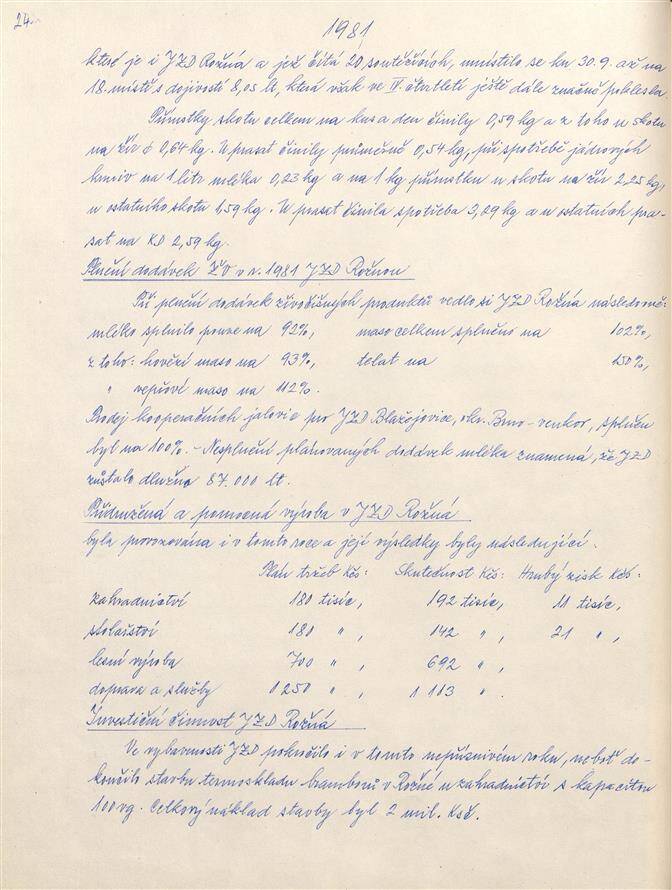 24.
1981
které je i JZD Rožná a jež čítá 20 soutěžících, umístilo se ku 30.9. až na
18. místě s dojivostí 8,05 lt, která však ve IV. čtvrtletí ještě dále značně poklesla
Přírustky skotu celkem na kus a den činily 0,59 kg a z toho u skotu
na žír ø 0,64 kg. U prasat činily průměrně 0,54 kg, při spotřebě jádrových
krmiv na 1 litr mléka 0,23 kg a na 1 kg přírustku u skotu na žír 2,25 kg,
u ostatního skotu 1,59 kg. U prasat činila spotřeba 3,09 kg a u ostatních pra-
sat na KD 2,59 kg.
Plnění dodávek ŽV v r. 1981 JZD Rožnou
Při plnění dodávek živočišných produktů vedlo si JZD Rožná následovně:
mléko splnilo pouze na 92%, maso celkem splněno na 102%,
z toho: hovězí maso na 93%, telat na 150%,
" vepřové maso na 112%.
Prodej kooperačních jalovic pro JZD Blažejovice, okr. Brno-venkov, splněn
byl na 100%. - Nesplnění plánovaných dodávek mléka znamená, že JZD
zůstalo dlužno 87.000 lt.
Přidružená a pomocná výroba v JZD Rožná
byla provozována i v tomto roce a její výsledky byly následující.
Plán tržeb Kčs: Skutečnost Kčs: Hrubý zisk Kčs:
zahradnictví 180 tisíc, 192 tisíc, 11 tisíc,
stolařství 180 " , 142 " , 21 " ,
lesní výroba 700 " , 692 " ,
doprava a služby 1 250 " , 1 113 " .
Investiční činnost JZD Rožná
Ve vybavenosti JZD pokročilo i v tomto nepříznivém roku, neboť do-
končilo stavbu termoskladu bramborů v Rožné u zahradnictví s kapacitou
100 vg. Celkový náklad stavby byl 2 mil. Kčs.